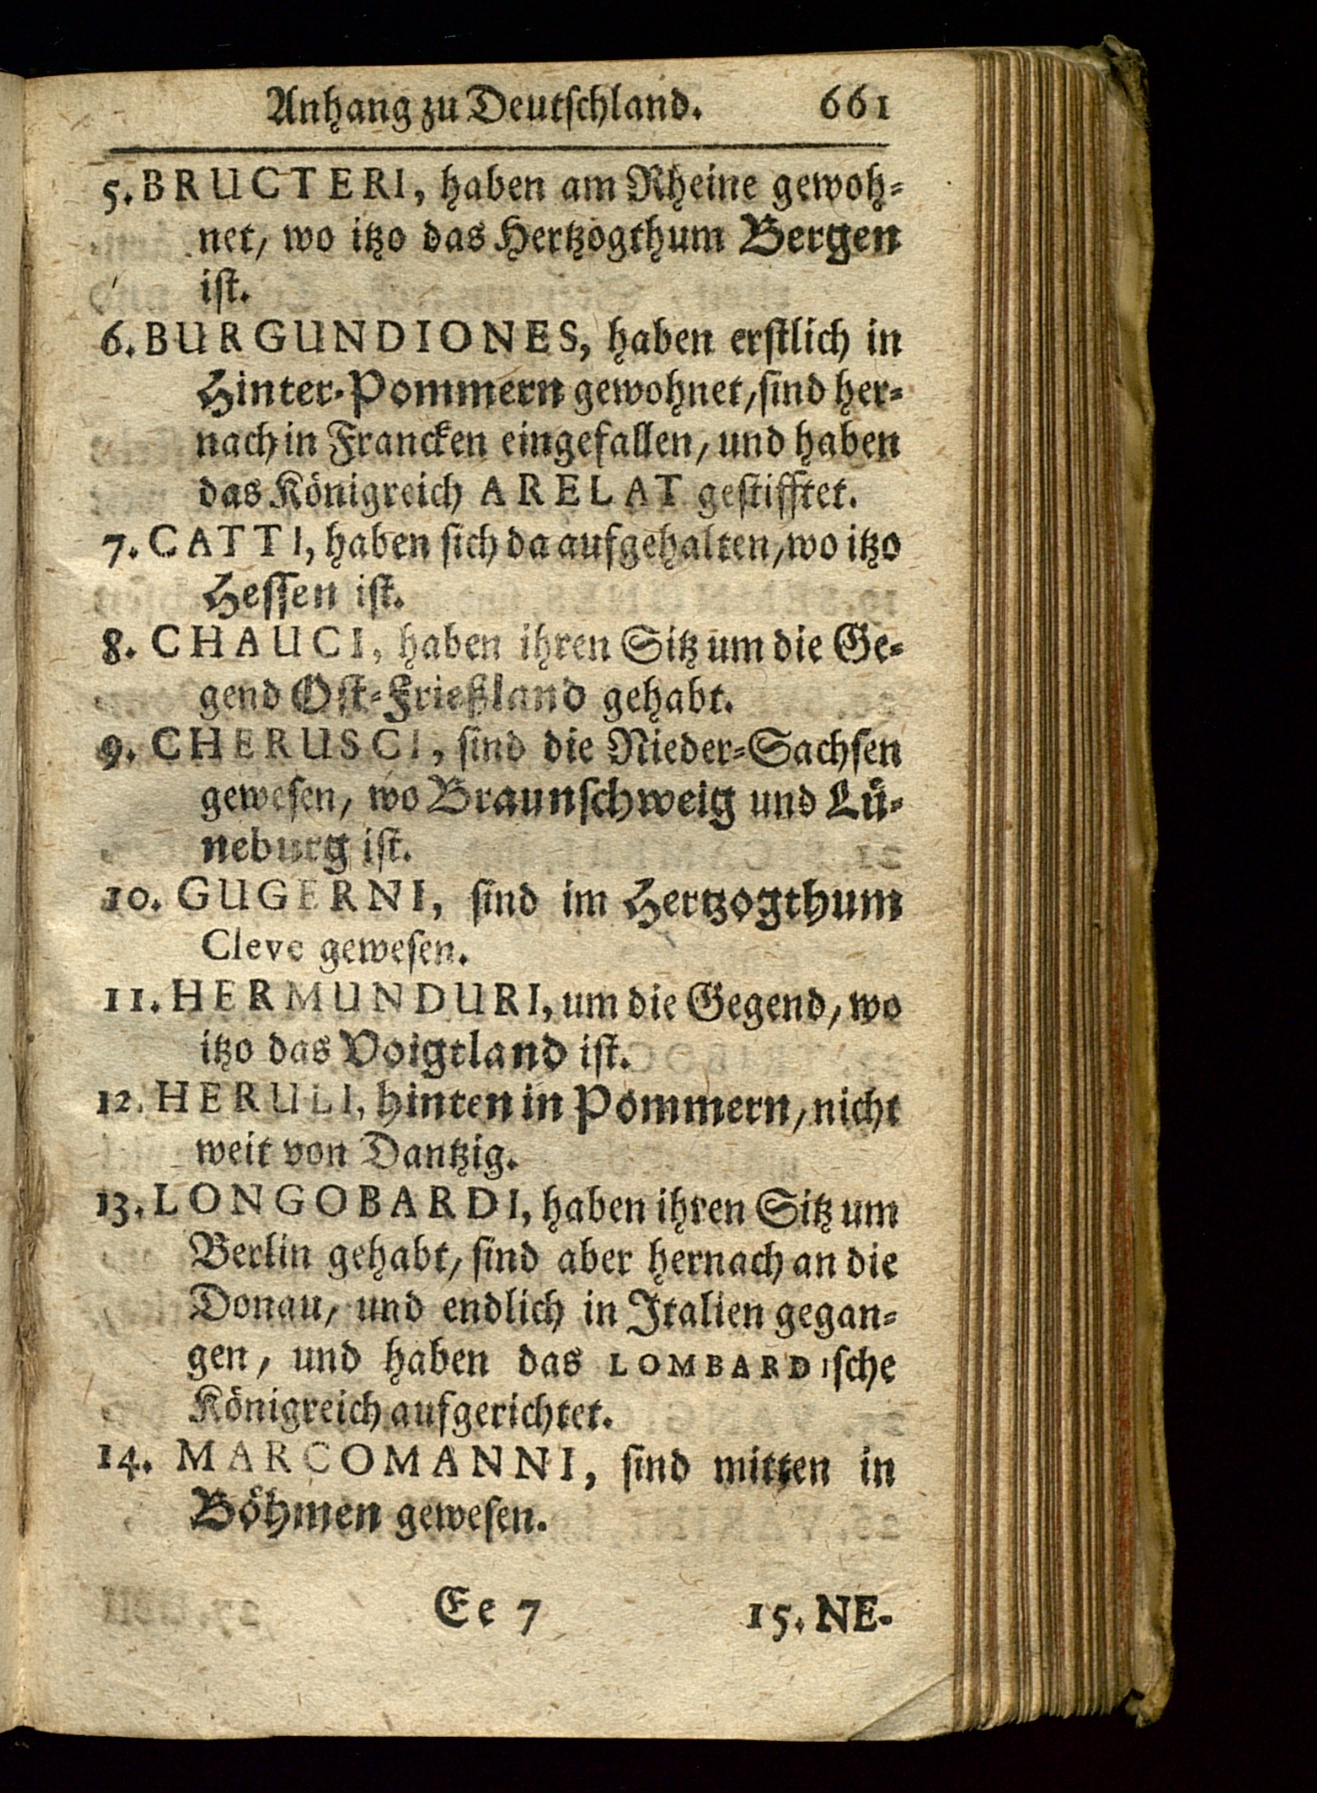 Anhang zu Deutſchland. 661
5. BRUCTERI, haben am Rheine gewoh⸗
net, wo itzo das Hertzogthum Bergen
iſt.
6. BURGUNDIONES, haben erſtlich in
Hinter-Pommern gewohnet, ſind her⸗
nach in Francken eingefallen, und haben
das Königreich ARELAT geſtifftet.
7. CATTI, haben ſich da aufgehalten, wo itzo
Heſſen iſt.
8. CHAUCI, haben ihren Sitz um die Ge⸗
gend Oſt⸗Frießland gehabt.
9. CHERUSCI, ſind die Nieder⸗Sachſen
geweſen, wo Braunſchweig und Luͤ⸗
neburg iſt.
10. GUGERNI, ſind im Hertzogthum
Cleve geweſen.
11. HERMUNDURI, um die Gegend, wo
itzo das Voigtland iſt.
12. HERULI, hinten in Pommern, nicht
weit von Dantzig.
13. LONGOBARDI, haben ihren Sitz um
Berlin gehabt, ſind aber hernach an die
Donau, und endlich in Italien gegan⸗
gen, und haben das LOMBARDiſche
Königreich aufgerichtet.
14. MARCOMANNI, ſind mitten in
Boͤhmen geweſen.
Ee 7 15. NE-